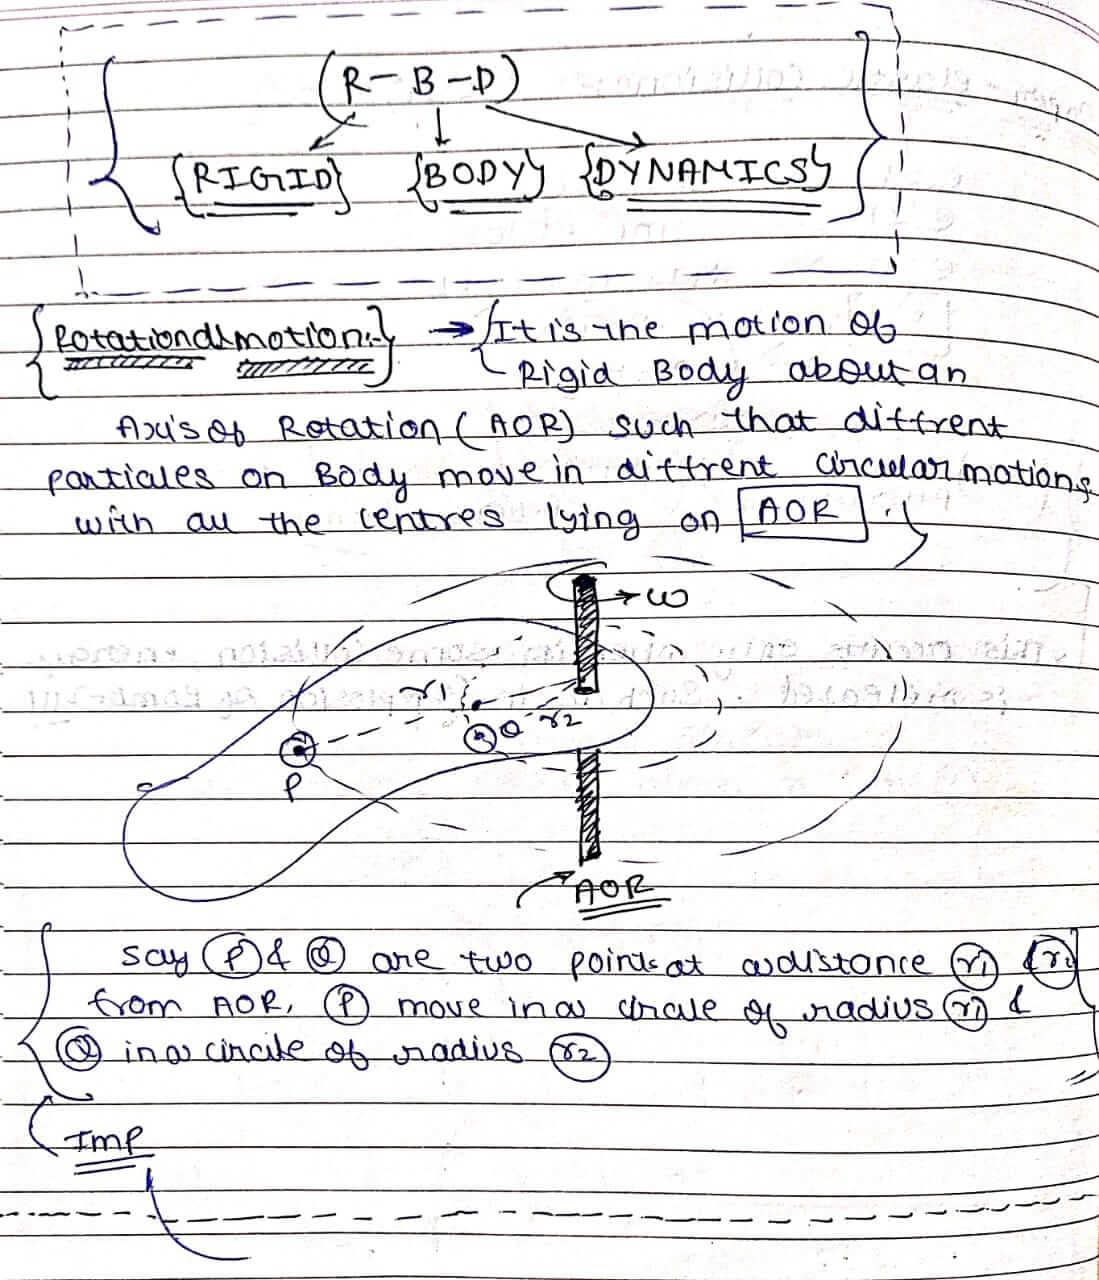 (R-B-D)
{RIGID} {BODY} {DYNAMICS}
{Rotational motion:-} → {It is the motion of
Rigid Body about an
Axis of Rotation (AOR) such that diffrent
particles on Body move in diffrent circular motions
with all the centres lying on AOR.}
ω
r1
Q r2
P
AOR
say P & Q are two points at a distance r1 & r2
from AOR, P move in a circle of radius r1 &
Q in a circle of radius r2
Imp